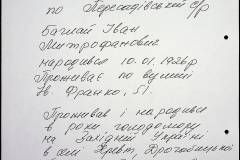 по Пересадівській с/р
Баглай Іван
Митрофанович
народився 10.01.1926р
Проживає по вулиці
Ів. Франко, 51.
Проживав і народився
в роки голодомору
на Західній Україні
в селі Дрогобицької